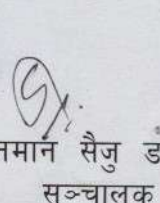 तमान सैजु ड
सञ्चालक